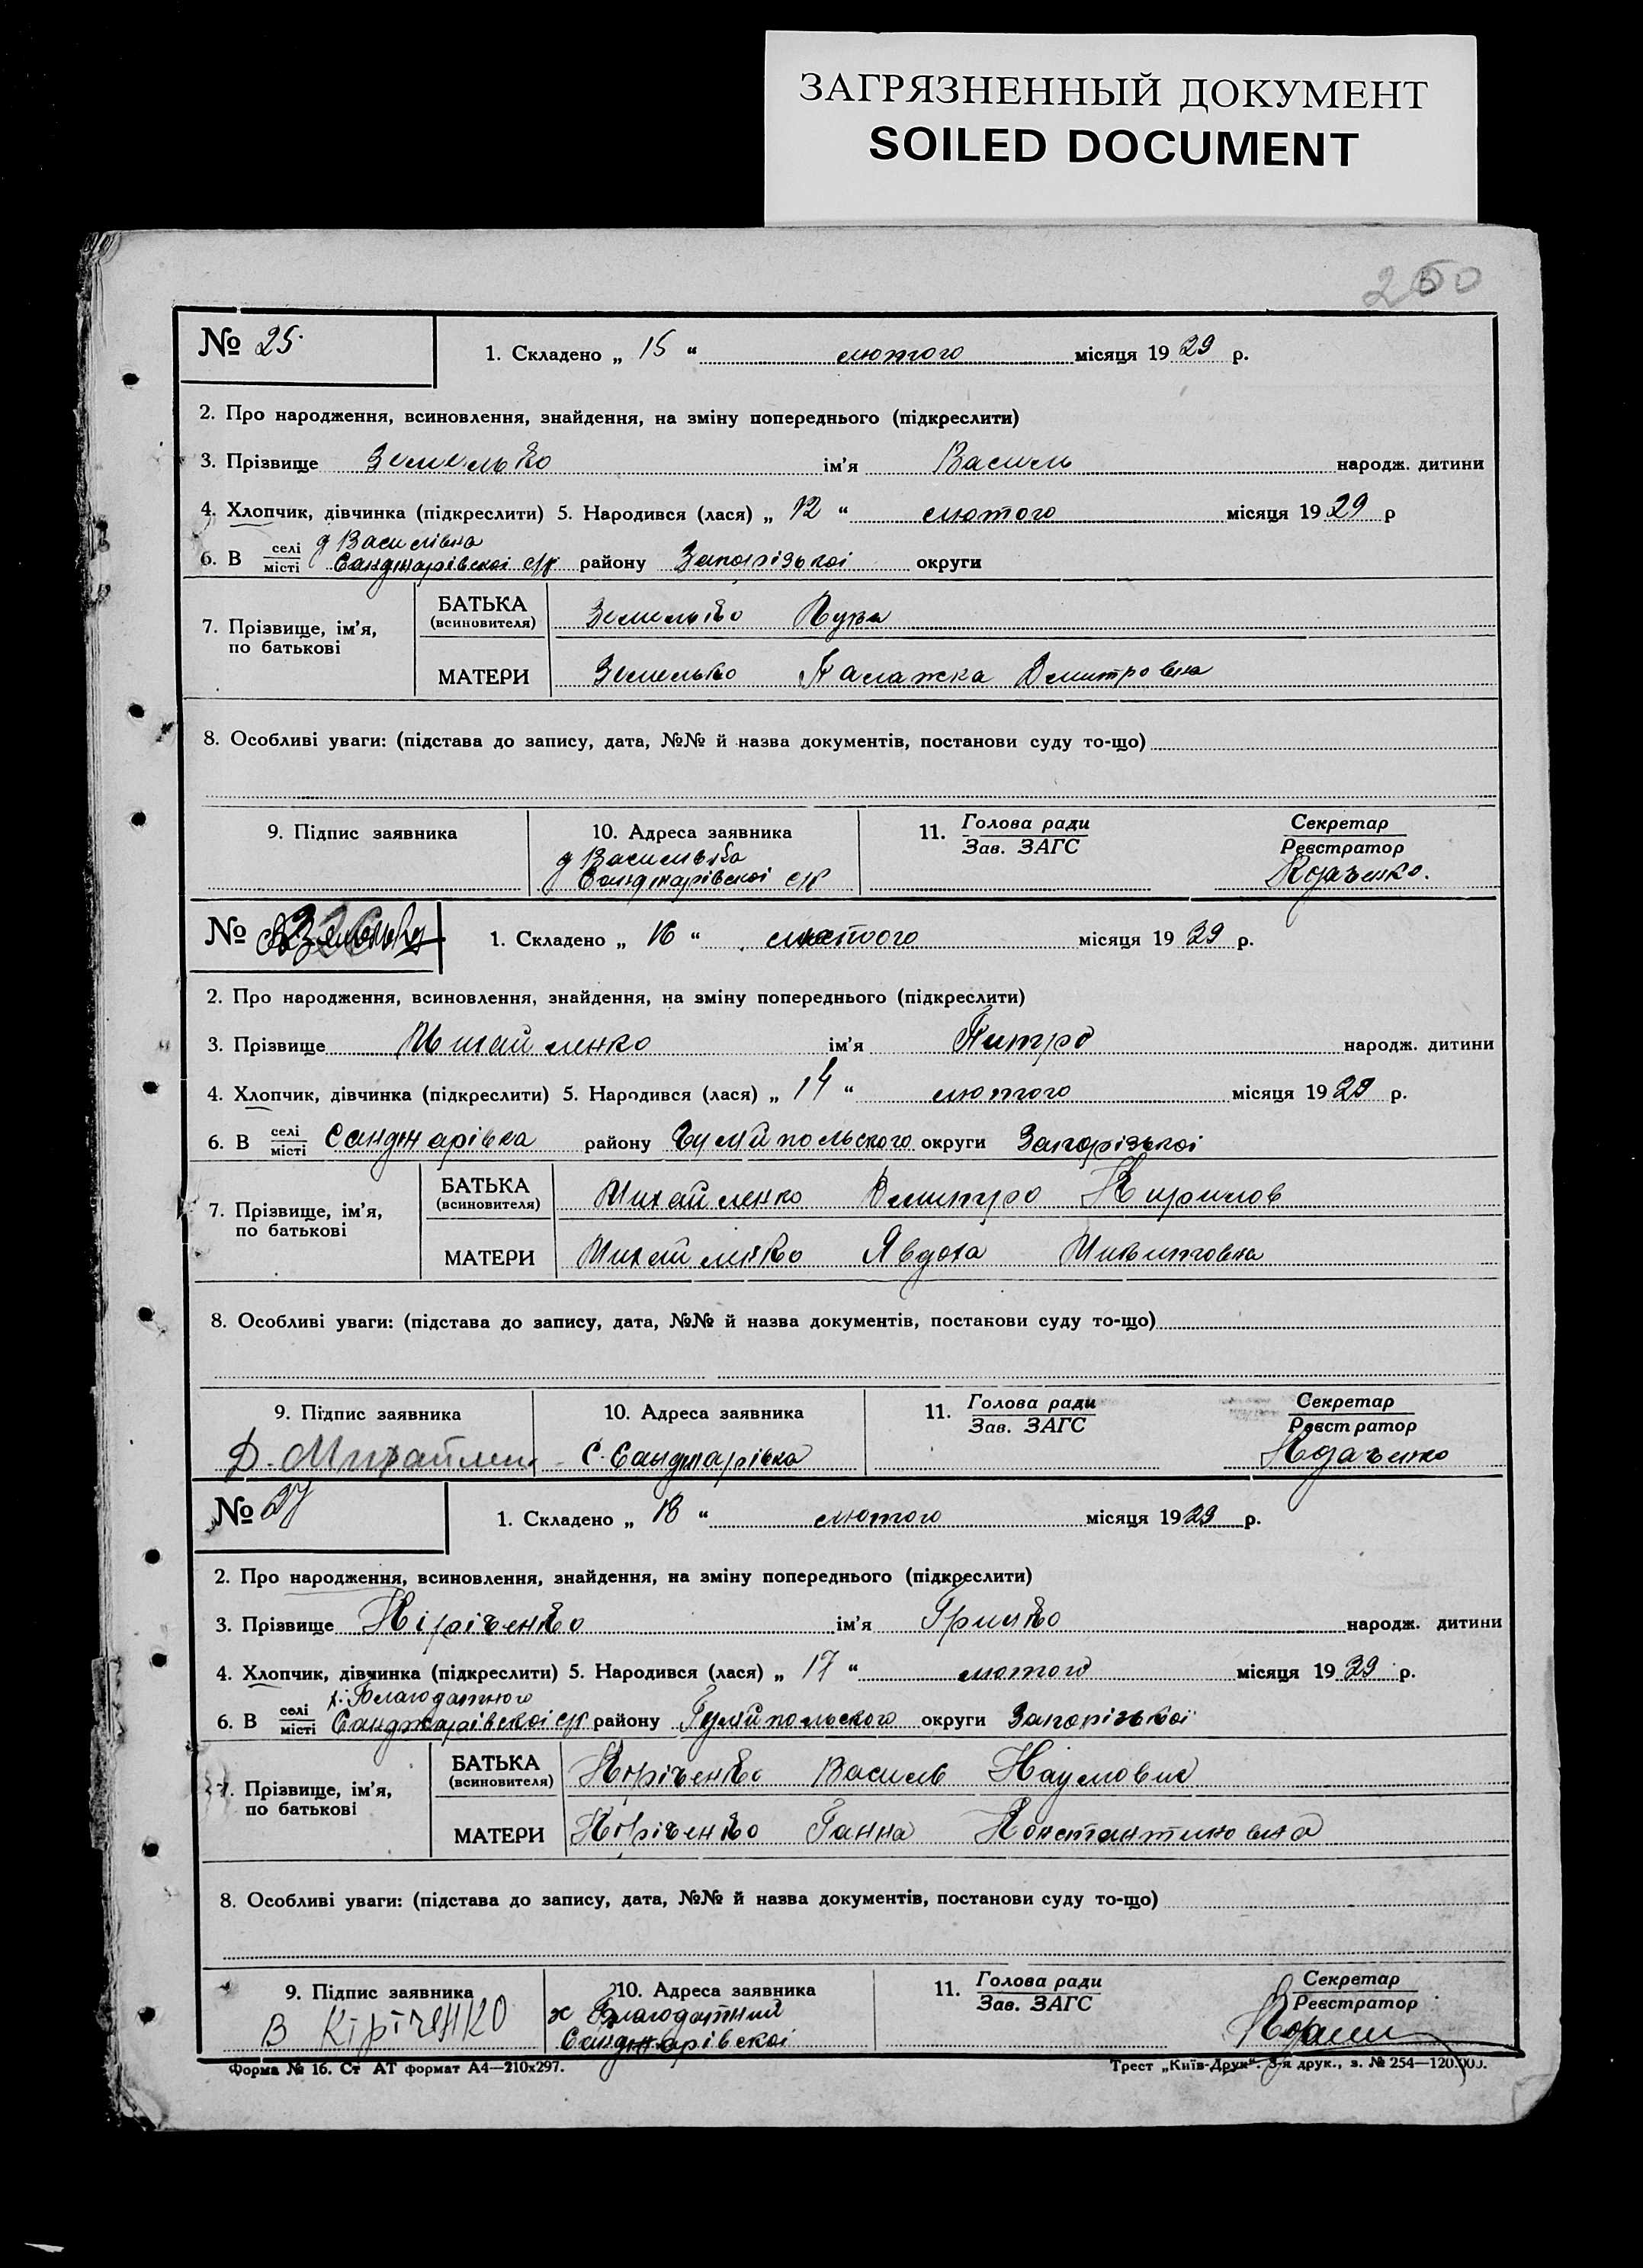 ЗАГРЯЗНЕННЫЙ ДОКУМЕНТ
SOILED DOCUMENT
250
№ 25.
1. Складено „ 15 “ лютого місяця 1929 р.
2. Про народження, всиновлення, знайдення, на зміну попереднього (підкреслити)
3. Прізвище Земелько ім'я Василь народж. дитини
4. Хлопчик, дівчинка (підкреслити) 5. Народився (лася) „ 12 “ лютого місяця 1929 р
д Василівка
6. В селі місті Санджарівскоі с/р району Запорізькоі округи
7. Прізвище, ім'я, по батькові
БАТЬКА (всиновителя) Земелько Лука
МАТЕРИ Земелько Палажка Дмитровна
8. Особливі уваги: (підстава до запису, дата, №№ й назва документів, постанови суду то-що)
9. Підпис заявника 10. Адреса заявника 11. Голова ради Зав. ЗАГС Секретар Реєстратор
д Васильвка
Санджарівскоі с/р
№
1. Складено „ 16 “ лютого місяця 1929 р.
2. Про народження, всиновлення, знайдення, на зміну попереднього (підкреслити)
3. Прізвище Михайленко ім'я Питро народж. дитини
4. Хлопчик, дівчинка (підкреслити) 5. Народився (лася) „ 14 “ лютого місяця 1929 р.
6. В селі місті Санджарівка району Гуляйпольского округи Запорізькоі
7. Прізвище, ім'я, по батькові
БАТЬКА (всиновителя) Михайленко Дмитро Кирилов
МАТЕРИ Михайленко Явдоха Микитовна
8. Особливі уваги: (підстава до запису, дата, №№ й назва документів, постанови суду то-що)
9. Підпис заявника 10. Адреса заявника 11. Голова ради Зав. ЗАГС Секретар Реєстратор
Д. Михайлен. С. Санджарівка
№ 27
1. Складено „ 18 “ лютого місяця 1929 р.
2. Про народження, всиновлення, знайдення, на зміну попереднього (підкреслити)
3. Прізвище Кіріченко ім'я Грицко народж. дитини
4. Хлопчик, дівчинка (підкреслити) 5. Народився (лася) „ 17 “ лютого місяця 1929 р.
х. Благодатного
6. В селі місті Санджарівскоі с/р району Гуляйпольского округи Запорізькоі
7. Прізвище, ім'я, по батькові
БАТЬКА (всиновителя) Кіріченко Василь Наумович
МАТЕРИ Кіріченко Ганна Константиновна
8. Особливі уваги: (підстава до запису, дата, №№ й назва документів, постанови суду то-що)
9. Підпис заявника 10. Адреса заявника 11. Голова ради Зав. ЗАГС Секретар Реєстратор
В Кіріченко х Благодатний
Санджарівскоі
Форма № 16. Ст АТ формат А4—210х297. Трест „Київ-Друк“. 3-я друк., з. № 254—120.000.